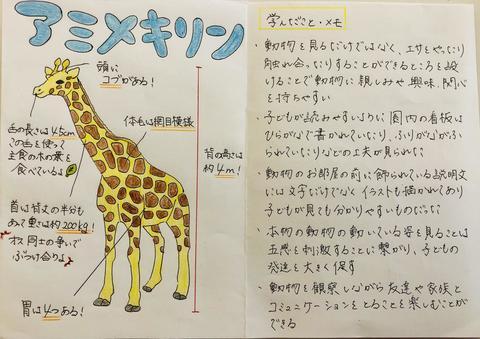 アミメキリン
頭に
コブがある！
舌の長さは45cm
この舌を使って
主食の木の葉を
食べているよ
体毛は網目模様
背の高さは
約4m！
首は背丈の半分も
あって重さは約200kg！
オス同士の争いで
ぶつけ合うよ
胃は4つある！
学んだこと・メモ
・動物を見るだけではなく、エサをやったり
触れ合ったりすることができるところを設
けることで動物に親しみや興味、関心
を持ちやすい
・子どもが読みやすいように園内の看板は
ひらがなで書かれていたり、ふりがながふ
られていたりなどの工夫が見られた
・動物のお部屋の前に飾られている説明文
には文字だけでなくイラストも描かれてあり
子どもが見ても分かりやすいものだった
・本物の動物の動いている姿を見ることは
五感を刺激することに繋がり、子どもの
発達を大きく促す
・動物を観察しながら友達や家族と
コミュニケーションをとることを楽しむことが
できる